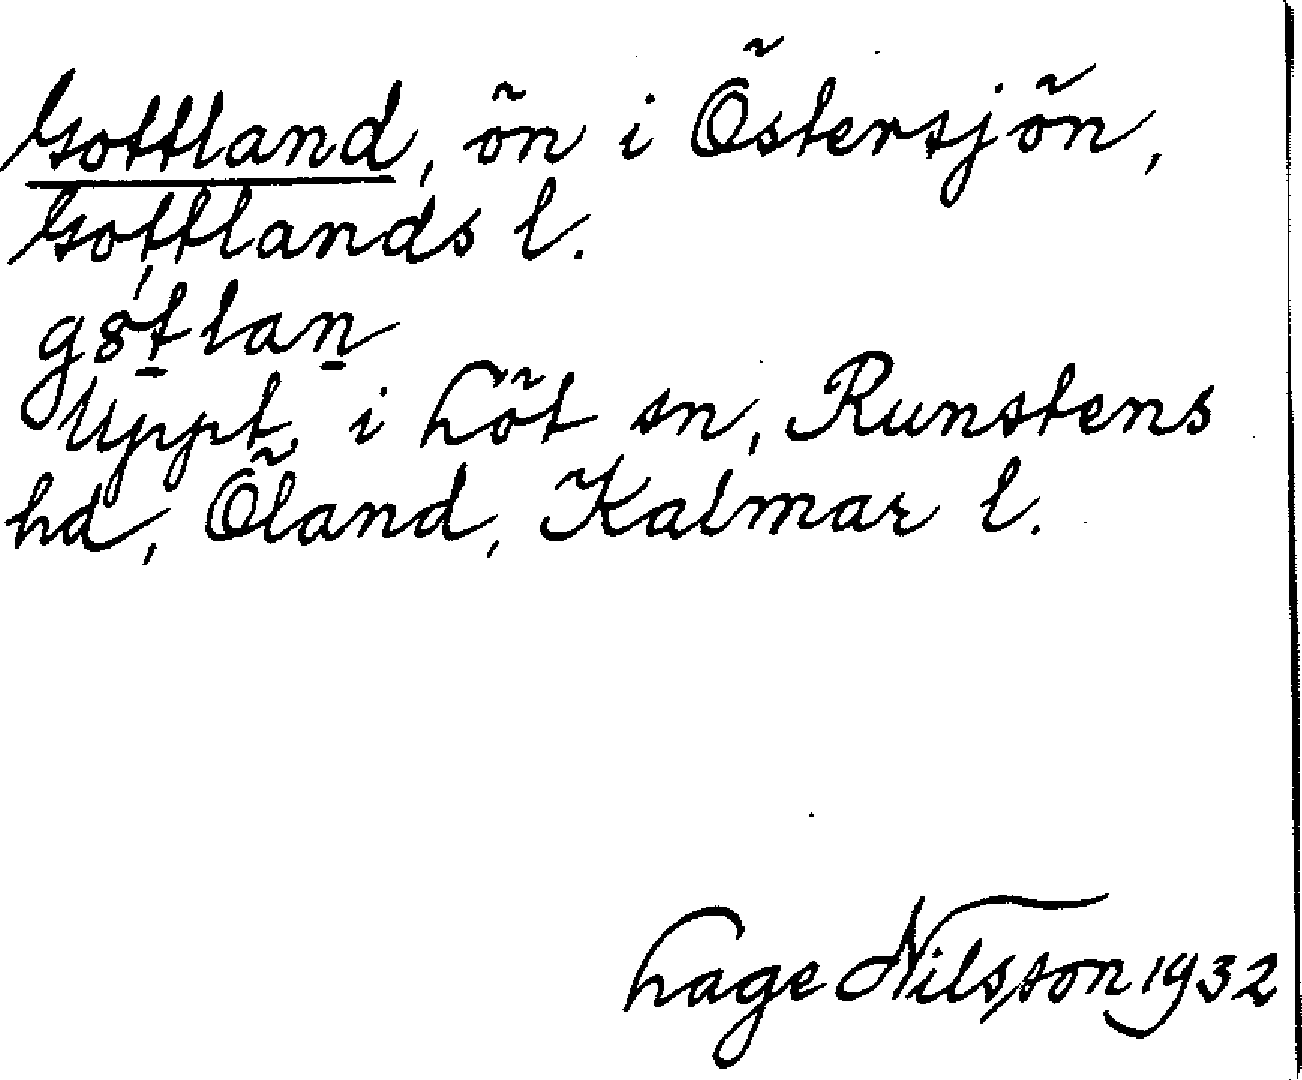 Gottland, ön i Östersjön,
Gottlands l.
g8tlan
Uppt. i Löt sn, Runstens
hd, Öland, Kalmar l.
Lage Nilsson 1932